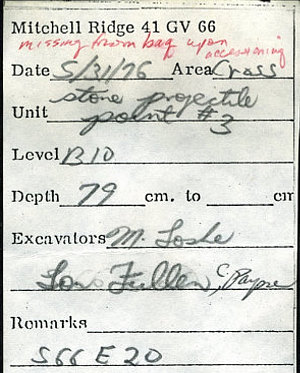 Mitchell Ridge 41 GV 66
missing from bag upon
accessioning
Date 5/31/76 Area Cross
stone projectile
Unit point #3
Level B10
Depth 79 cm. to cm
Excavators M.
Lou Fullen, C. Payne
Remarks
S66 E20